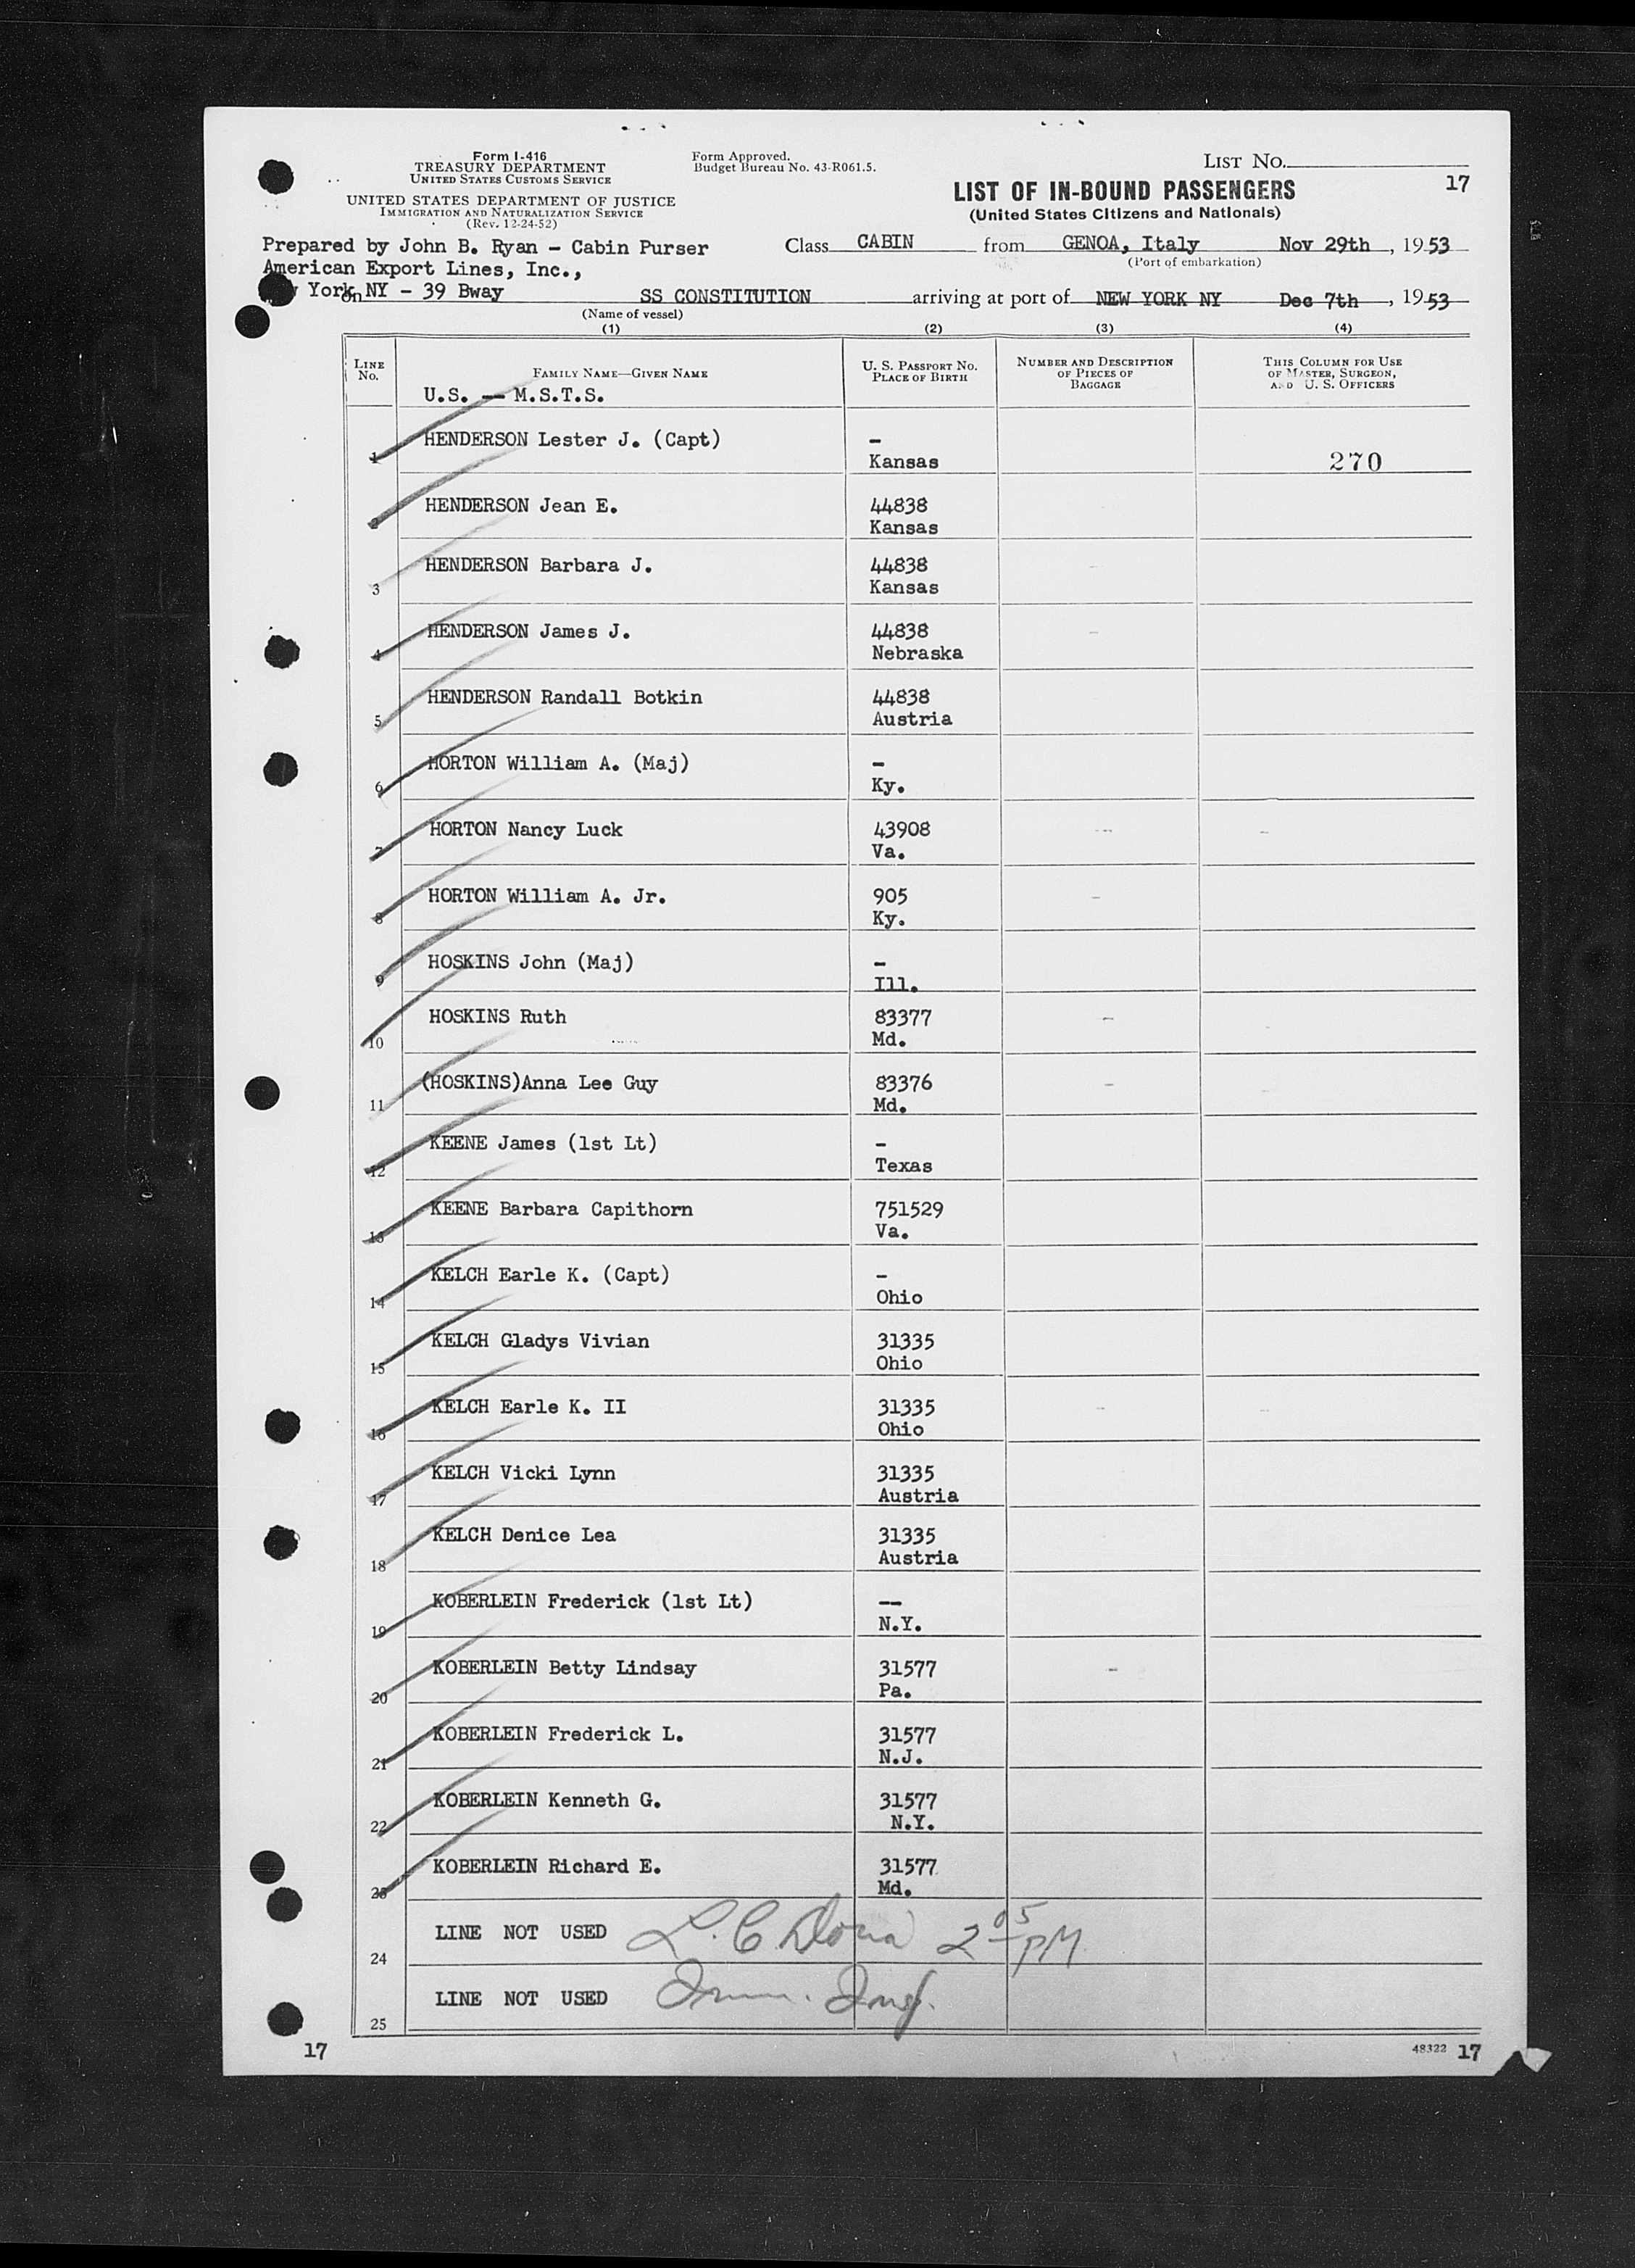 Form I-416
TREASURY DEPARTMENT
UNITED STATES CUSTOMS SERVICE
UNITED STATES DEPARTMENT OF JUSTICE
IMMIGRATION AND NATURALIZATION SERVICE
(Rev. 12-24-52)
Form Approved.
Budget Bureau No. 43-R061.5.
LIST NO.
17
LIST OF IN-BOUND PASSENGERS
(United States Citizens and Nationals)
Prepared by John B. Ryan - Cabin Purser
American Export Lines, Inc.,
York NY - 39 Bway
Class CABIN from GENOA, Italy Nov 29th, 1953
(Port of embarkation)
on SS CONSTITUTION arriving at port of NEW YORK NY Dec 7th, 1953
(Name of vessel)
(1) (2) (3) (4)
LINE NO. FAMILY NAME—GIVEN NAME U. S. PASSPORT NO. PLACE OF BIRTH NUMBER AND DESCRIPTION OF PIECES OF BAGGAGE THIS COLUMN FOR USE OF MASTER, SURGEON, AND U. S. OFFICERS
U.S. -- M.S.T.S.
1 HENDERSON Lester J. (Capt) -
Kansas 270
2 HENDERSON Jean E. 44838
Kansas
3 HENDERSON Barbara J. 44838
Kansas
4 HENDERSON James J. 44838
Nebraska
5 HENDERSON Randall Botkin 44838
Austria
6 HORTON William A. (Maj) -
Ky.
7 HORTON Nancy Luck 43908
Va.
8 HORTON William A. Jr. 905
Ky.
9 HOSKINS John (Maj) -
Ill.
10 HOSKINS Ruth 83377
Md.
11 (HOSKINS)Anna Lee Guy 83376
Md.
12 KEENE James (1st Lt) -
Texas
13 KEENE Barbara Capithorn 751529
Va.
14 KELCH Earle K. (Capt) -
Ohio
15 KELCH Gladys Vivian 31335
Ohio
16 KELCH Earle K. II 31335
Ohio
17 KELCH Vicki Lynn 31335
Austria
18 KELCH Denice Lea 31335
Austria
19 KOBERLEIN Frederick (1st Lt) --
N.Y.
20 KOBERLEIN Betty Lindsay 31577
Pa.
21 KOBERLEIN Frederick L. 31577
N.J.
22 KOBERLEIN Kenneth G. 31577
N.Y.
23 KOBERLEIN Richard E. 31577
Md.
24 LINE NOT USED L. C. 2 05 PM
25 LINE NOT USED Imm. Insp.
17
48322 17